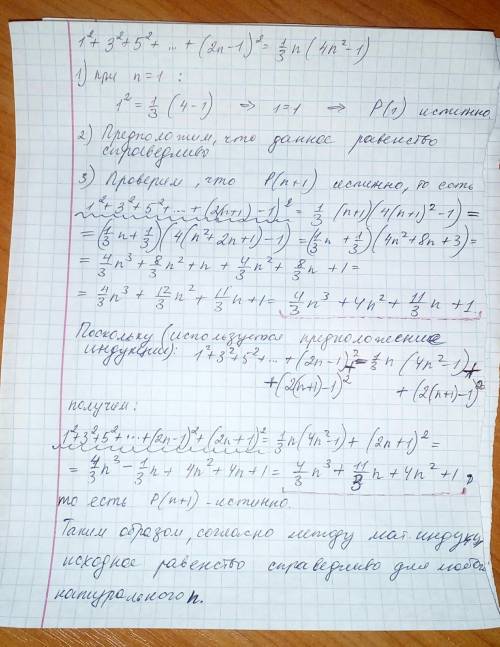 1² + 3² + 5² + ... + (2n-1)² = 1/3 n (4n² - 1)
1) при n=1 :
1² = 1/3 (4-1) => 1=1 => P(1) истинно
2) Предположим, что данное равенство
справедливо
3) Проверим, что P(n+1) истинно, то есть
1² + 3² + 5² + ... + (2(n+1) - 1)² = 1/3 (n+1)(4(n+1)² - 1) =
= (1/3 n + 1/3)(4(n² + 2n + 1) - 1) = (1/3 n + 1/3)(4n² + 8n + 3) =
= 4/3 n³ + 8/3 n² + n + 4/3 n² + 8/3 n + 1 =
= 4/3 n³ + 12/3 n² + 11/3 n + 1 = 4/3 n³ + 4n² + 11/3 n + 1.
Поскольку (используется предположение
индукции): 1² + 3² + 5² + ... + (2n-1)² + = 1/3 n (4n² - 1) +
+ (2(n+1) - 1)² + (2(n+1) - 1)²
получем:
1² + 3² + 5² + ... + (2n-1)² + (2n+1)² = 1/3 n (4n² - 1) + (2n+1)² =
= 4/3 n³ - 1/3 n + 4n² + 4n + 1 = 4/3 n³ + 11/3 n + 4n² + 1,
то есть P(n+1) - истинно.
Таким образом, согласно методу мат. индукц
исходное равенство справедливо для любого
натурального n.